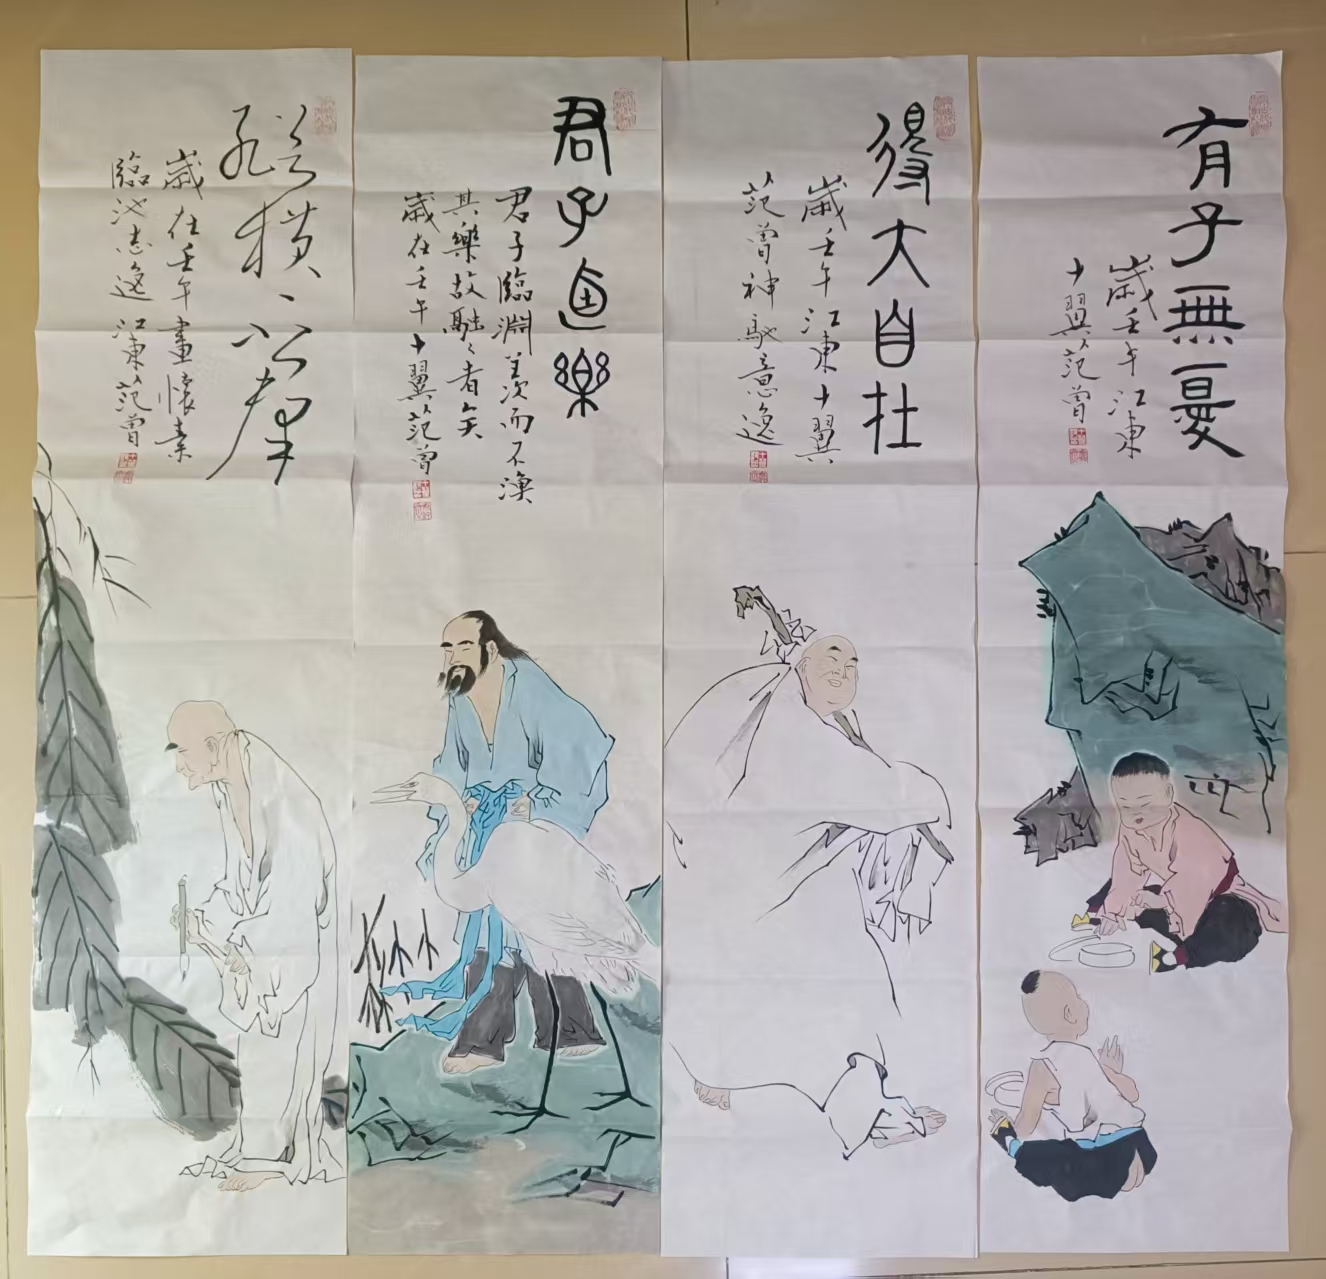 有子無憂
歲壬午江東
十翼范曾
得大自在
歲壬午江東十翼
范曾神馭意逸
君子逌樂
君子臨淵羨次而不漁
其樂故融々者矣
歲在壬午十翼范曾
縱橫、
歲在壬午畫懷素
臨池志逸 江東范曾